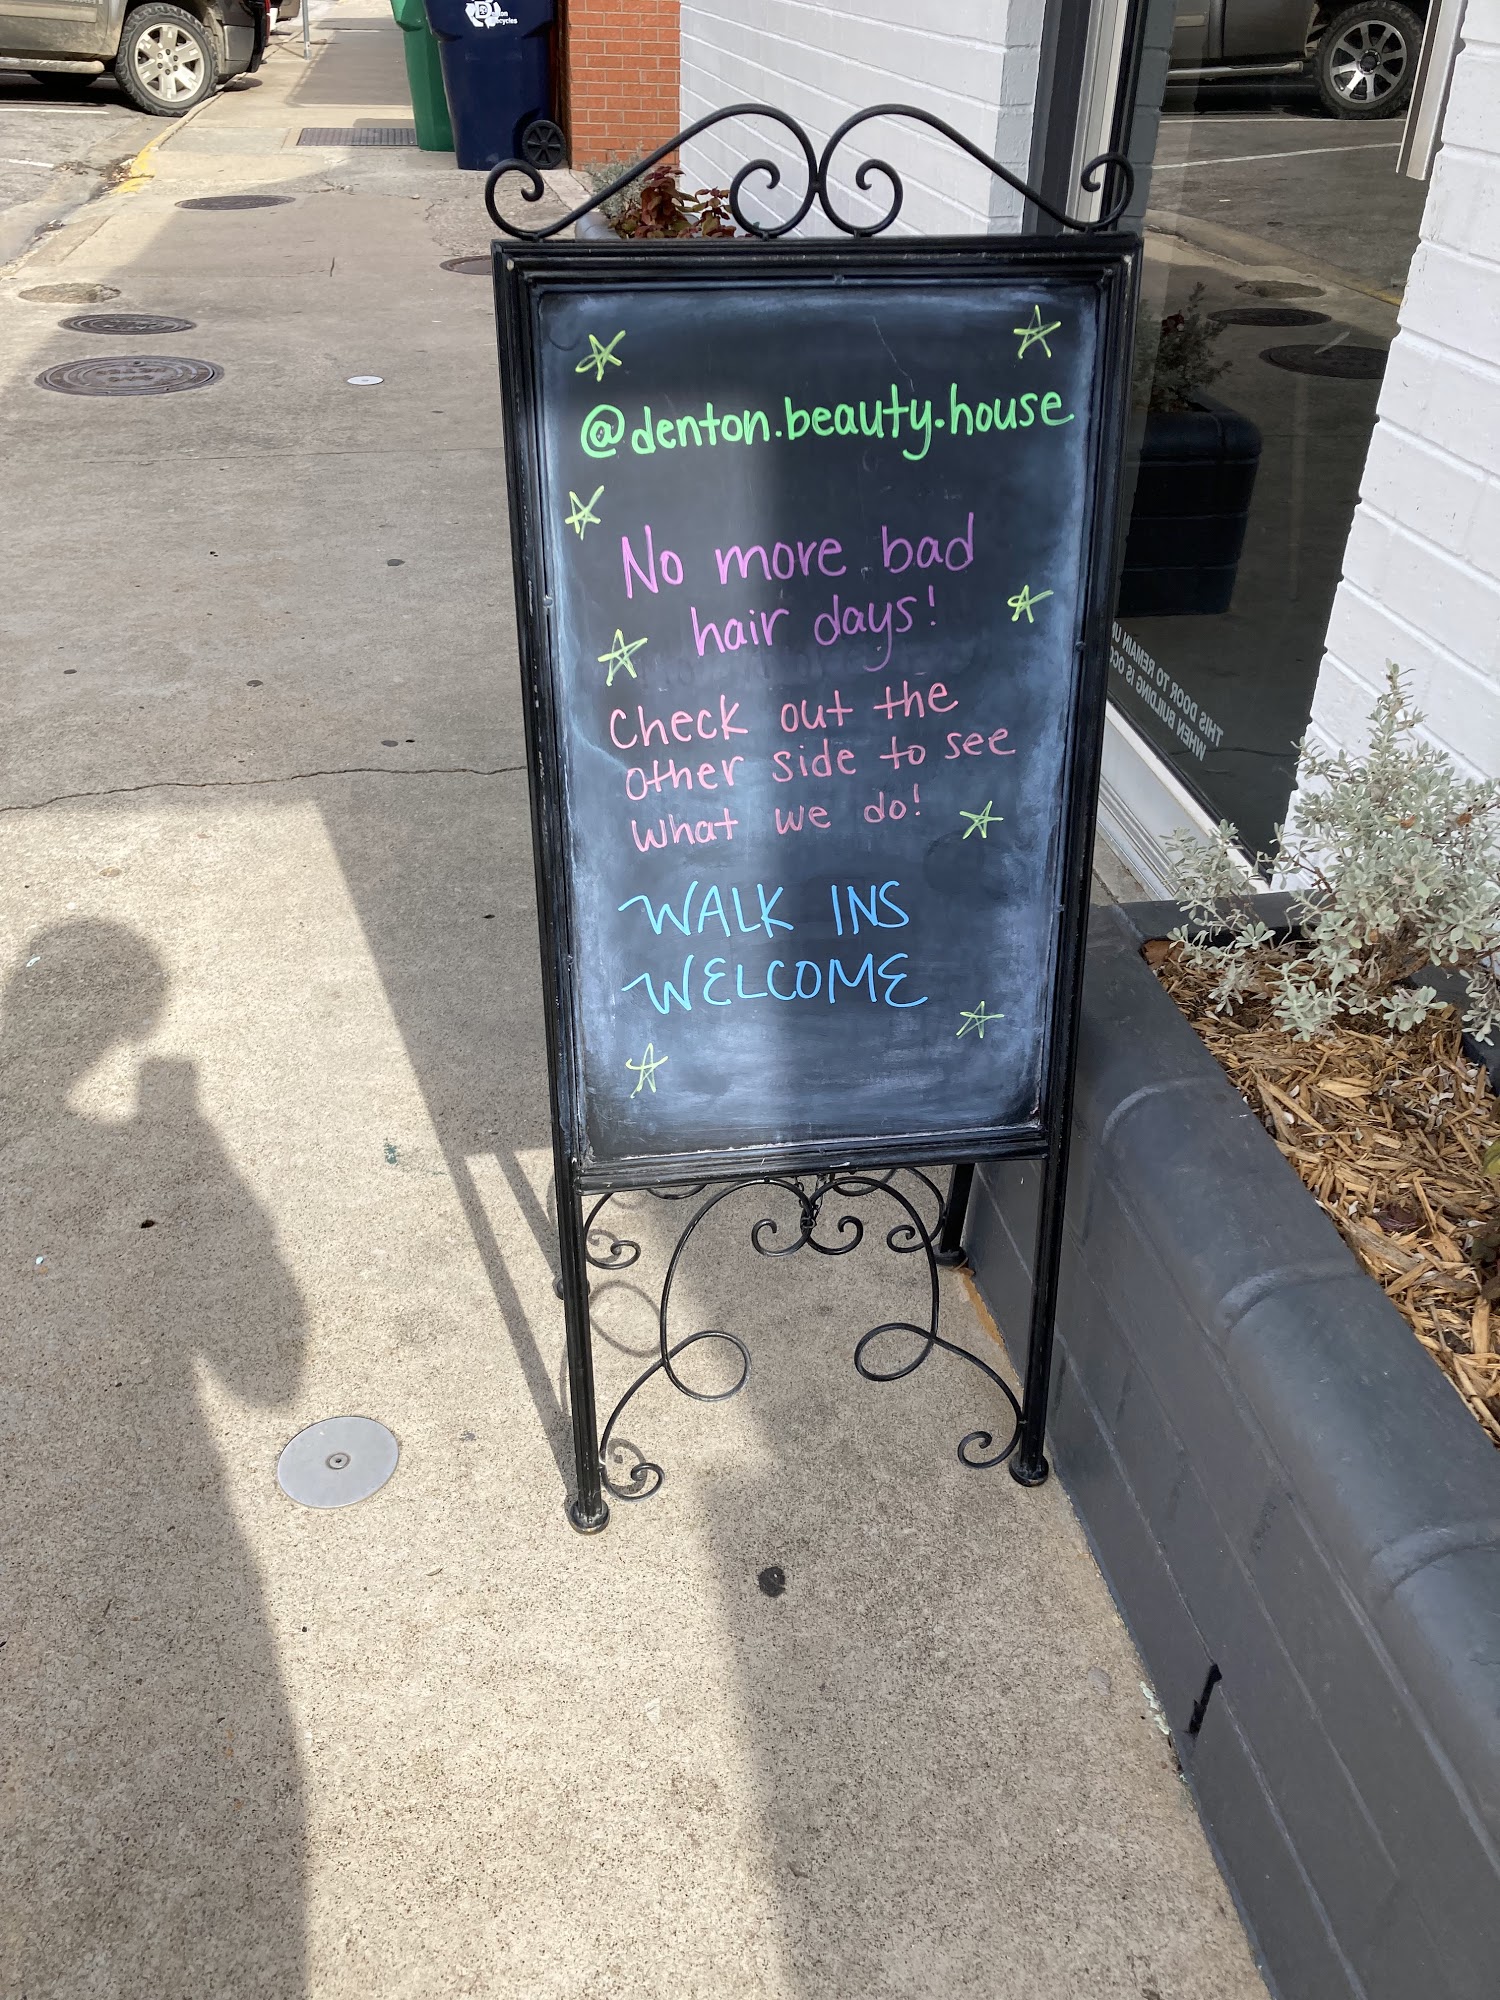 @denton.beauty.house
No more bad
hair days!
Check out the
other side to see
what we do!
WALK INS
WELCOME
THIS DOOR TO REMAIN UN
WHEN BUILDING IS OCC